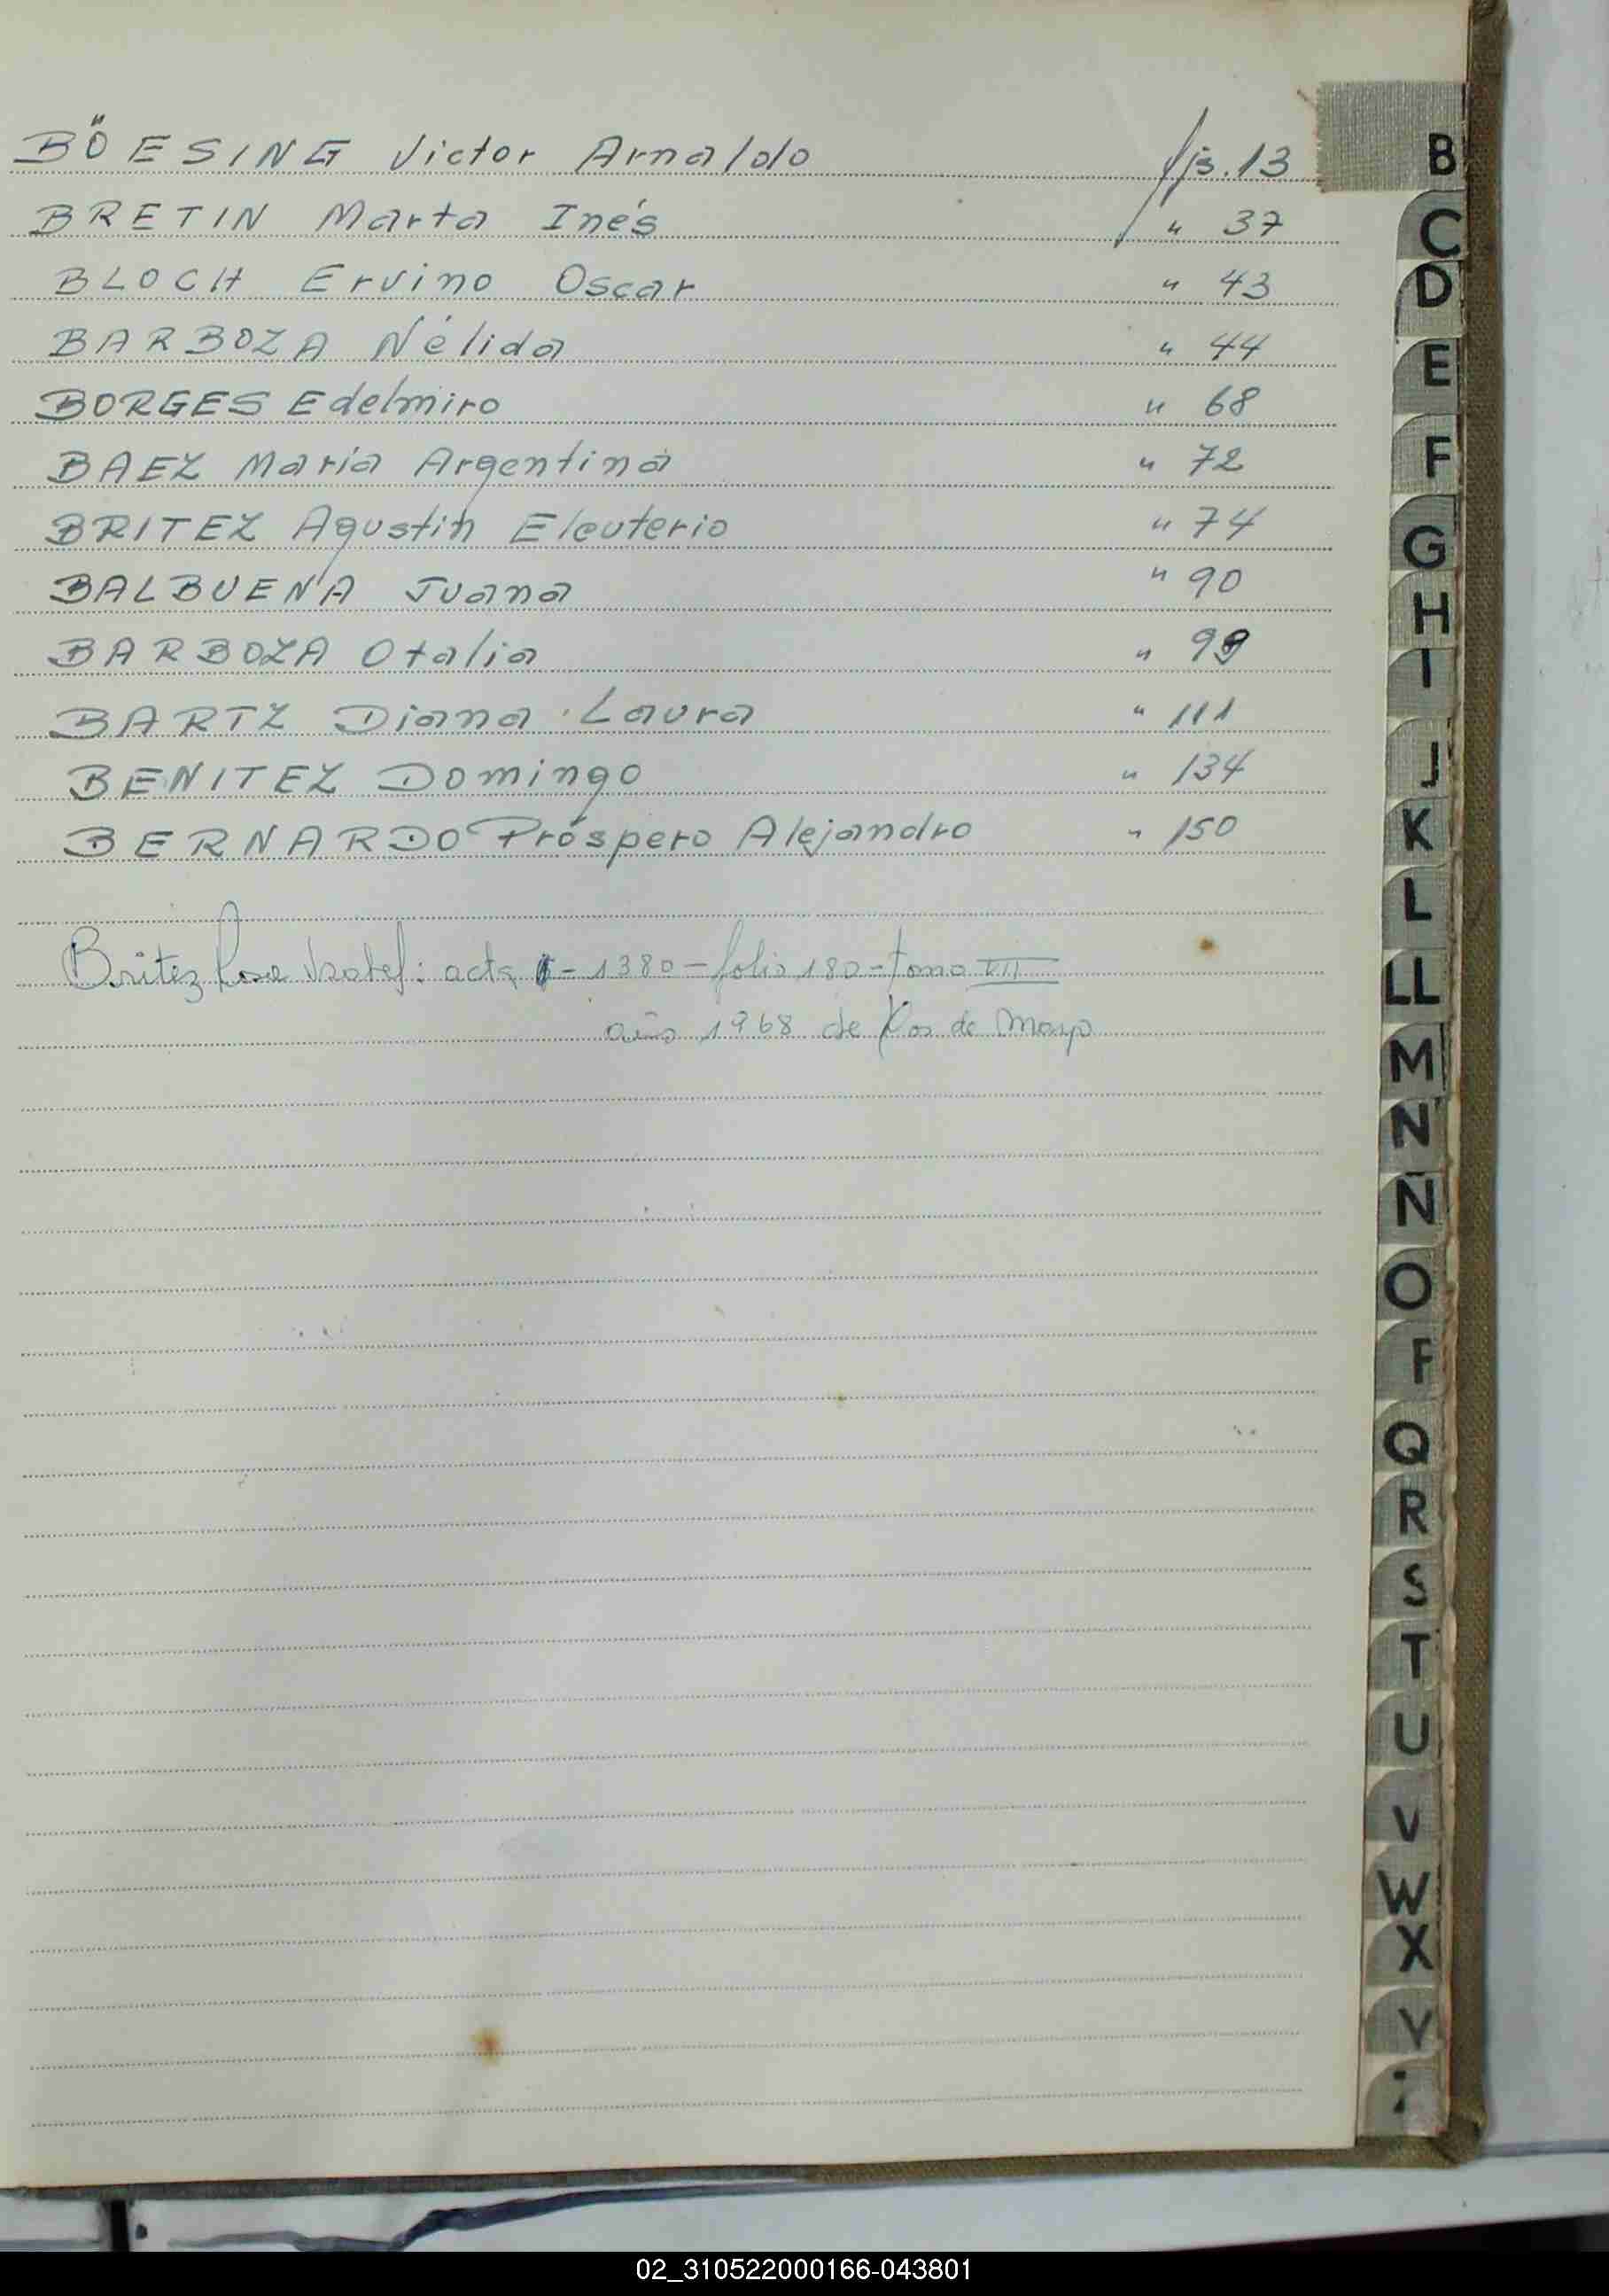 BÖESING Victor Arnaldo fjs. 13
BRETIN Marta Inés " 37
BLOCH Ervino Oscar " 43
BARBOZA Nélida " 44
BORGES Edelmiro " 68
BAEZ María Argentina " 72
BRITEZ Agustín Eleuterio " 74
BALBUENA Juana " 90
BARBOZA Otalia " 99
BARTZ Diana Laura " 111
BENITEZ Domingo " 134
BERNARDO Próspero Alejandro " 150
Britez Rosa Isabel: acta - 1380 - folio 180 - tomo VII
año 1968 de Dos de Mayo
B
C
D
E
F
G
H
I
J
K
L
LL
M
N
Ñ
O
P
Q
R
S
T
U
V
W
X
Y
Z
02_310522000166-043801